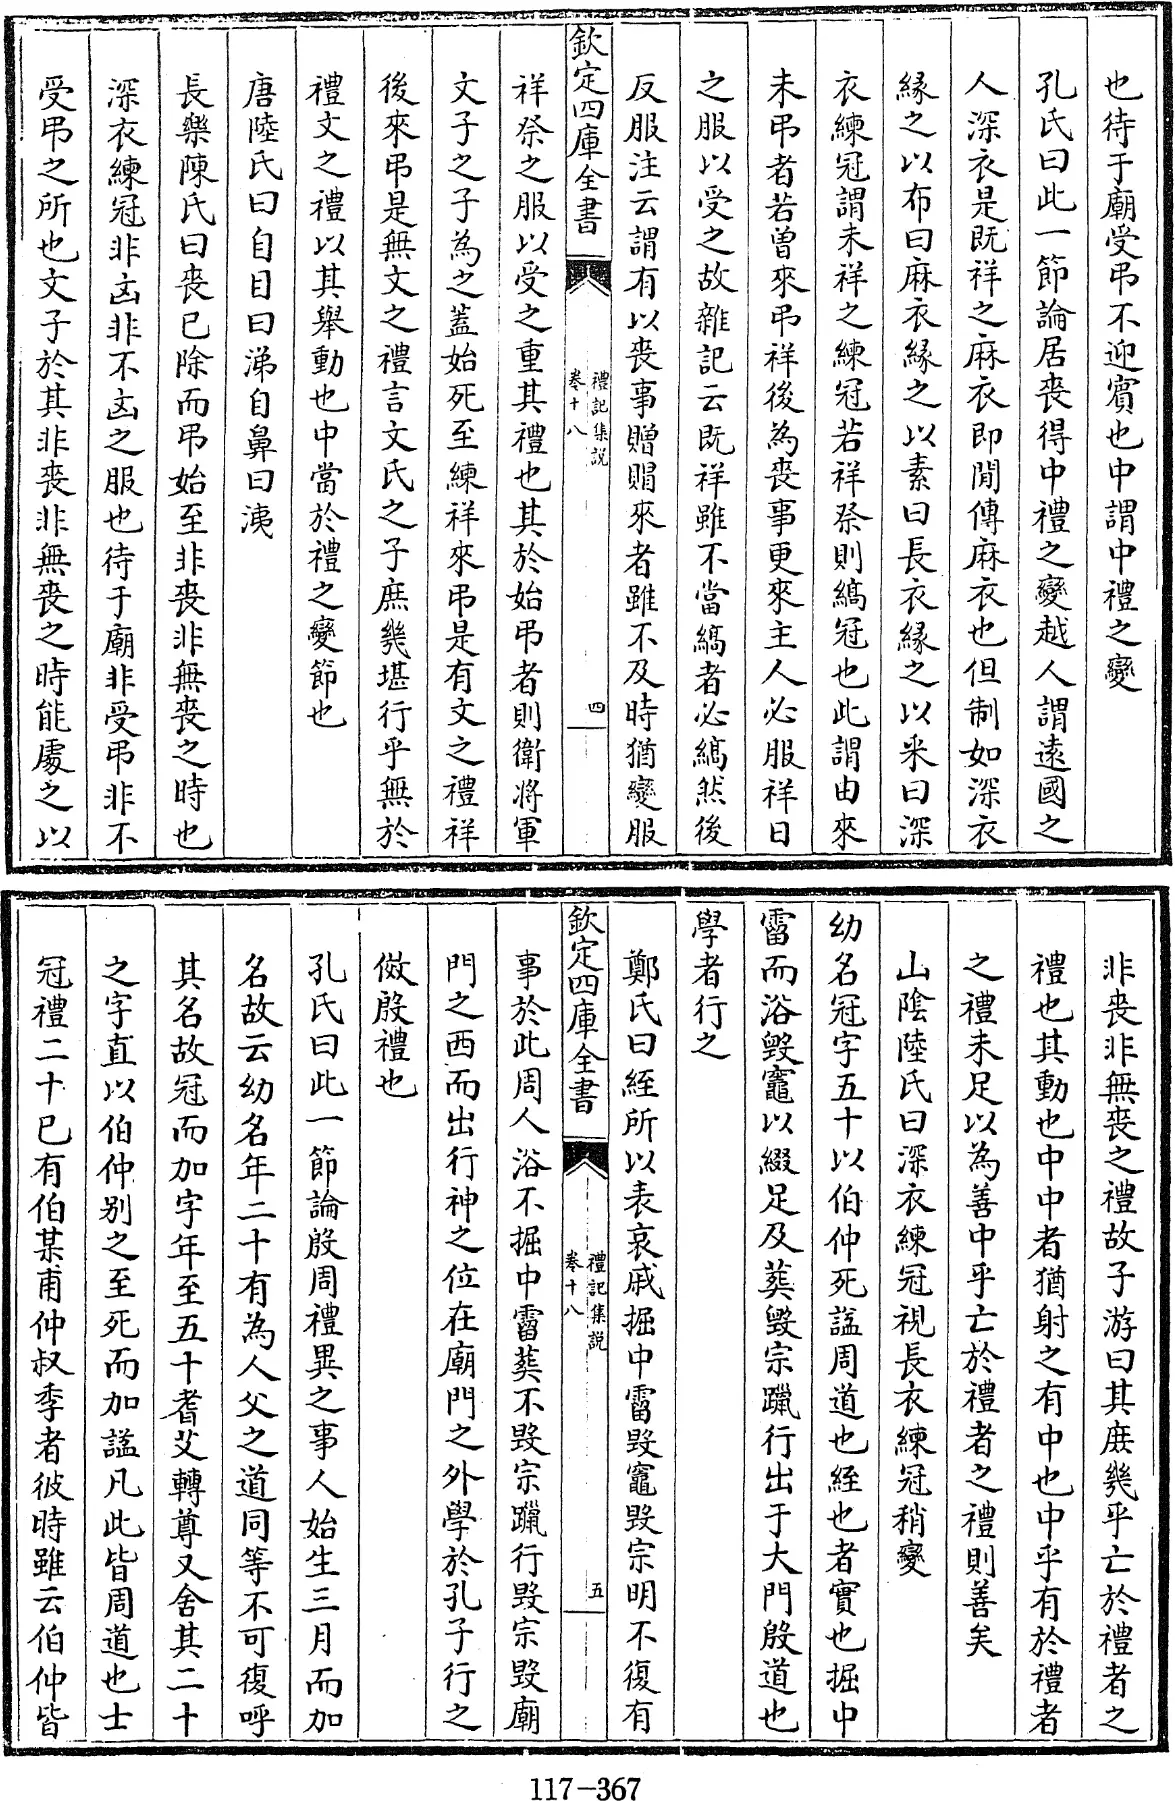 也待于廟受弔不迎賓也中謂中禮之變
孔氏曰此一節論居喪得中禮之變越人謂遠國之
人深衣是既祥之麻衣即閒傳麻衣也但制如深衣
緣之以布曰麻衣緣之以素曰長衣緣之以采曰深
衣練冠謂未祥之練冠若祥祭則縞冠也此謂由來
未弔者若曾來弔祥後為喪事更來主人必服祥日
之服以受之故雜記云既祥雖不當縞者必縞然後
反服注云謂有以喪事贈賵來者雖不及時猶變服
欽定四庫全書
禮記集說
卷十八
四
祥祭之服以受之重其禮也其於始弔者則衛將軍
文子之子為之蓋始死至練祥來弔是有文之禮祥
後來弔是無文之禮言文氏之子庶幾堪行乎無於
禮文之禮以其舉動也中當於禮之變節也
唐陸氏曰自目曰涕自鼻曰洟
長樂陳氏曰喪已除而弔始至非喪非無喪之時也
深衣練冠非凶非不凶之服也待于廟非受弔非不
受弔之所也文子於其非喪非無喪之時能處之以
非喪非無喪之禮故子游曰其庶幾乎亡於禮者之
禮也其動也中中者猶射之有中也中乎有於禮者
之禮未足以為善中乎亡於禮者之禮則善矣
山陰陸氏曰深衣練冠視長衣練冠稍變
幼名冠字五十以伯仲死諡周道也絰也者實也掘中
霤而浴毀竈以綴足及葬毀宗躐行出于大門殷道也
學者行之
鄭氏曰絰所以表哀戚掘中霤毀竈毀宗明不復有
欽定四庫全書
禮記集說
卷十八
五
事於此周人浴不掘中霤葬不毀宗躐行毀宗毀廟
門之西而出行神之位在廟門之外學於孔子行之
倣殷禮也
孔氏曰此一節論殷周禮異之事人始生三月而加
名故云幼名年二十有為人父之道同等不可復呼
其名故冠而加字年至五十耆艾轉尊又舍其二十
之字直以伯仲别之至死而加諡凡此皆周道也士
冠禮二十已有伯某甫仲叔季者彼時雖云伯仲皆
117-367